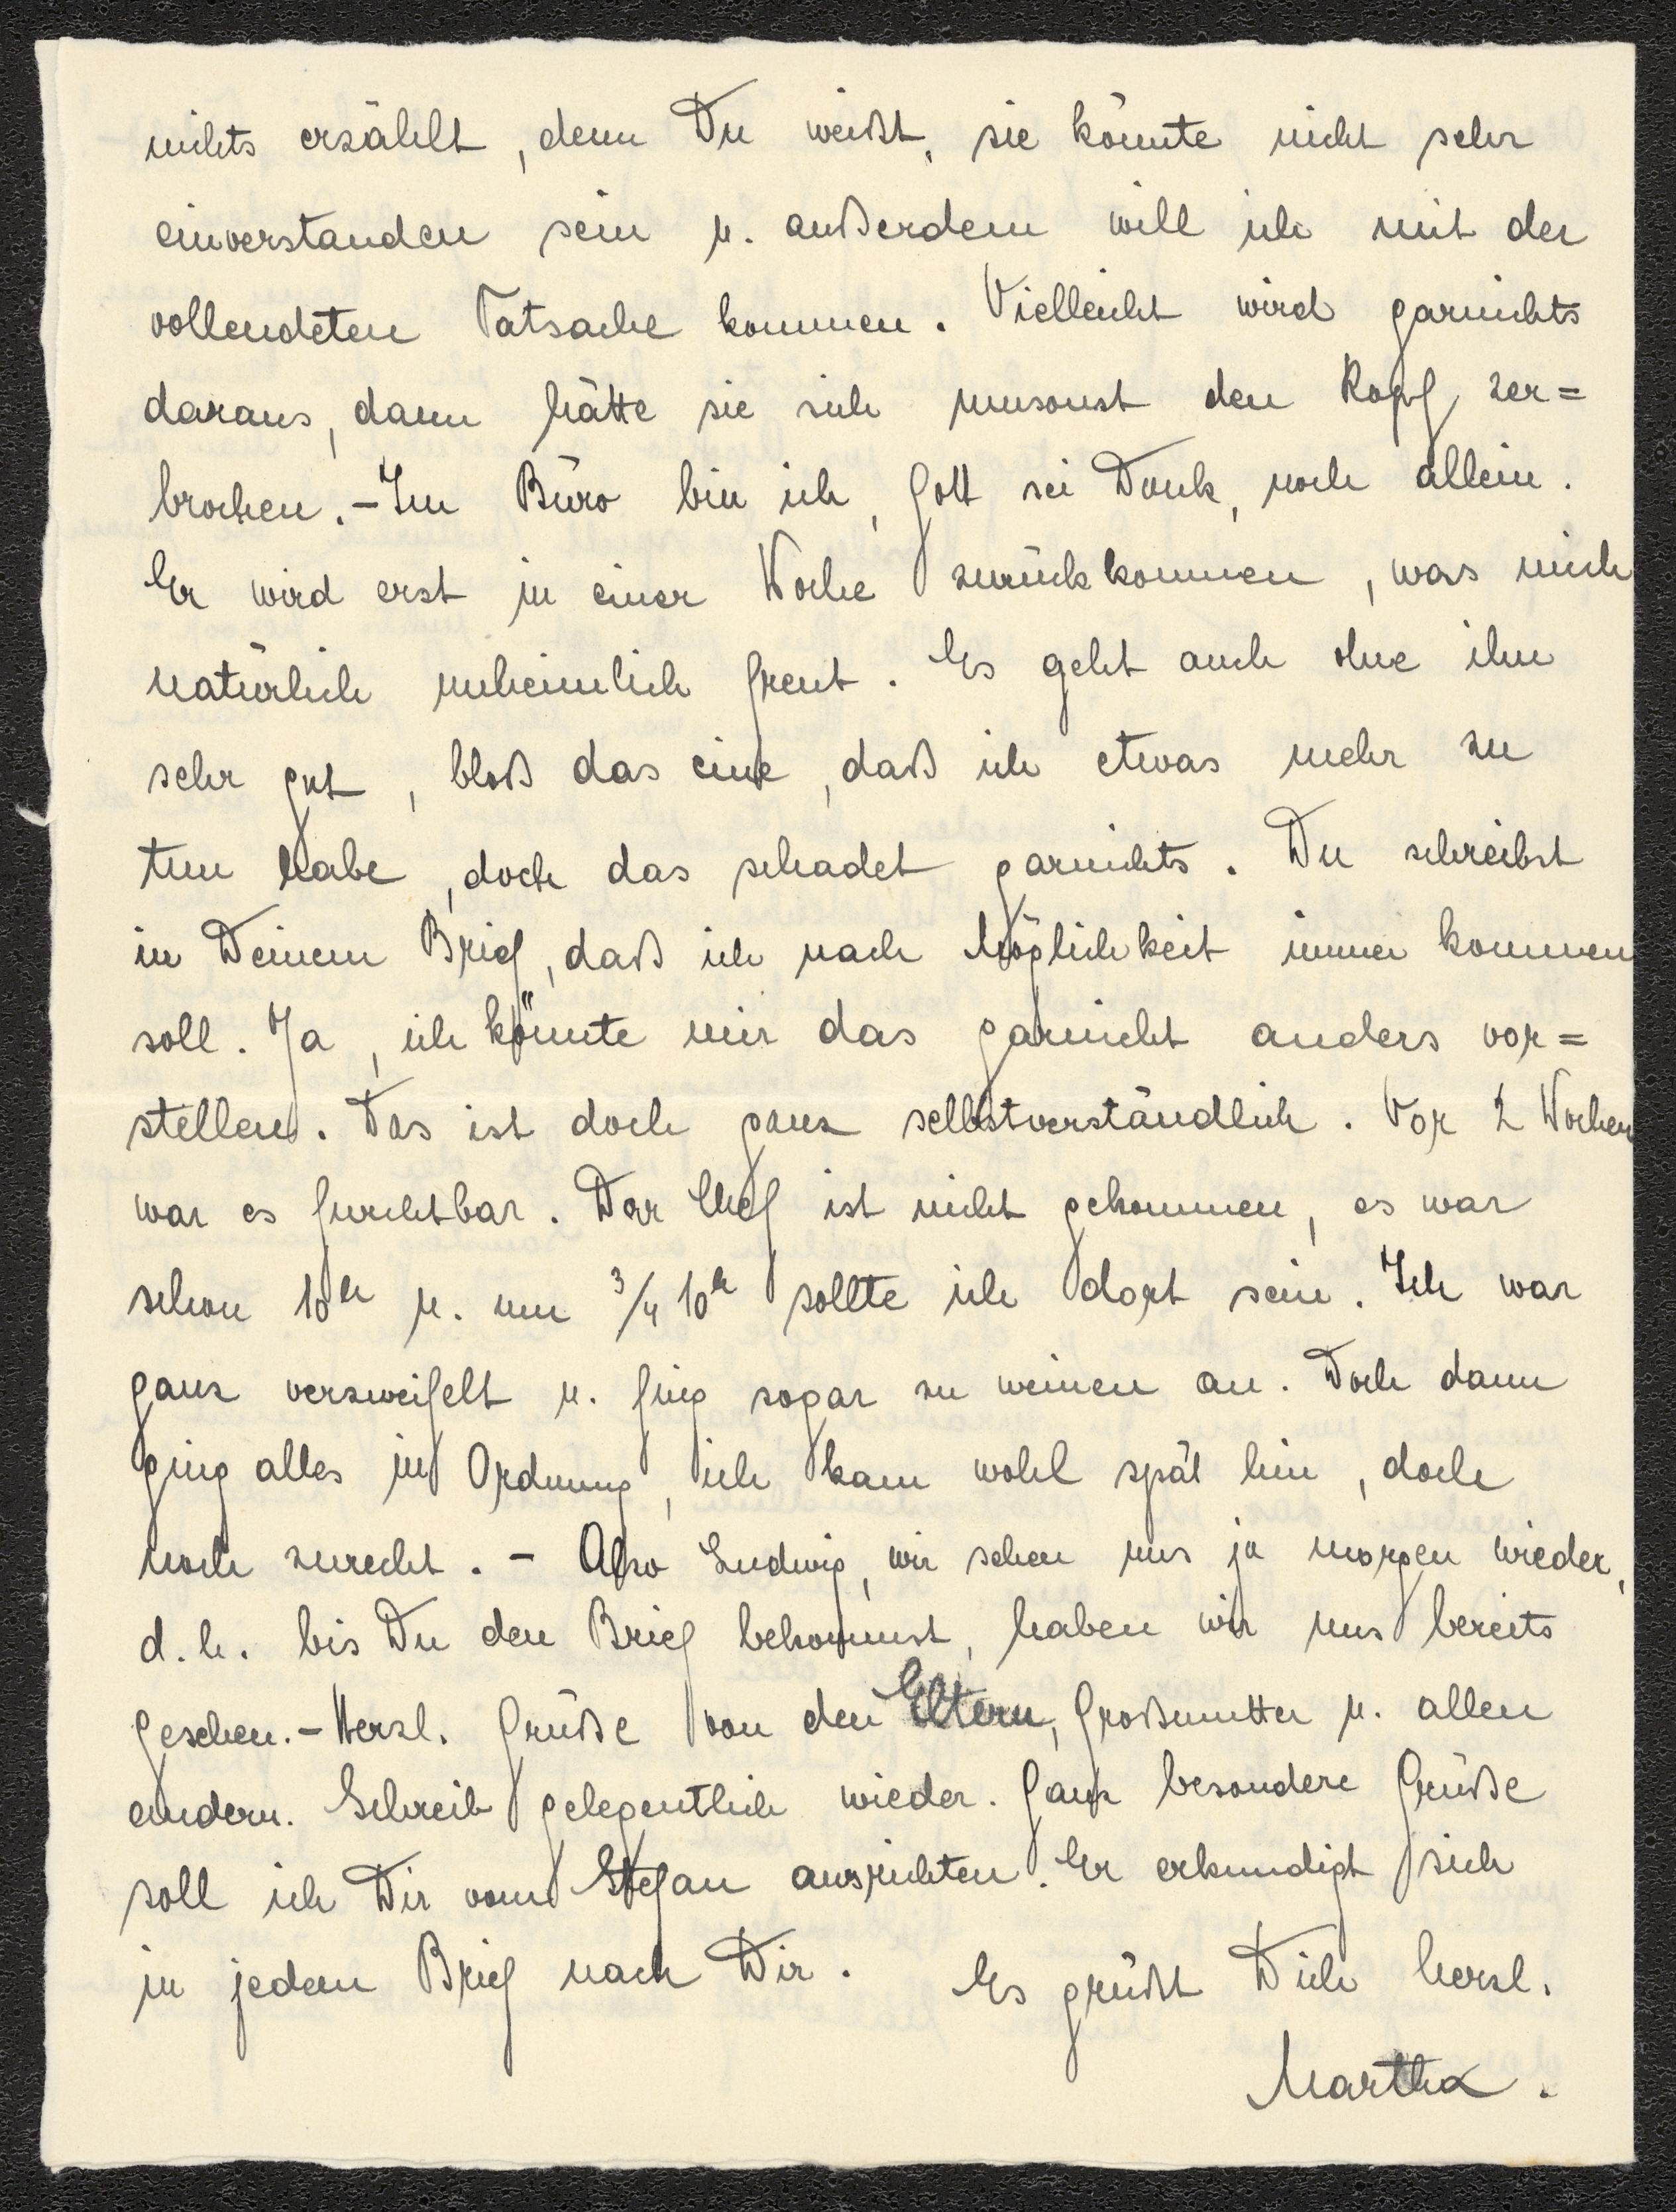 nichts erzählt, denn Du weißt, sie könnte nicht sehr
einverstanden sein u. außerdem will ich mit der
vollendeten Tatsache kommen. Vielleicht wird garnichts
daraus, dann hätte sie sich umsonst den Kopf zer=
brochen. - Im Büro bin ich, Gott sei Dank, noch allein.
Er wird erst in einer Woche zurückkommen, was mich
natürlich unheimlich freut. Es geht auch ohne ihn
sehr gut, bloß das eine, daß ich etwas mehr zu
tun habe, doch das schadet garnichts. Du schreibst
in Deinem Brief, daß ich nach Möglichkeit immer kommen
soll. Ja, ich könnte mir das garnicht anders vor=
stellen. Das ist doch ganz selbstverständlich. Vor 2 Wochen
war es furchtbar. Der Chef ist nicht gekommen, es war
schon 10h u. um 3/4 10h sollte ich dort sein. Ich war
ganz verzweifelt u. fing sogar zu weinen an. Doch dann
ging alles in Ordnung, ich kam wohl spät hin, doch
noch zurecht. - Also Ludwig, wir sehen uns ja morgen wieder,
d.h. bis Du den Brief bekommst, haben wir uns bereits
gesehen. - Herzl. Grüße von den Eltern, Großmutter u. allen
andern. Schreib gelegentlich wieder. Ganz besondere Grüße
soll ich Dir vom Stefan ausrichten. Er erkundigt sich
in jedem Brief nach Dir. Es grüßt Dich herzl.
Martha.